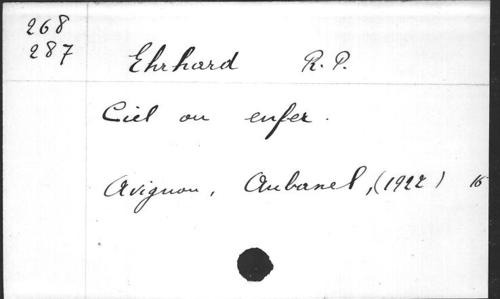 268
287
Ehrhard R. P.
Ciel ou enfer.
Avignon, Aubanel, (1922) 16